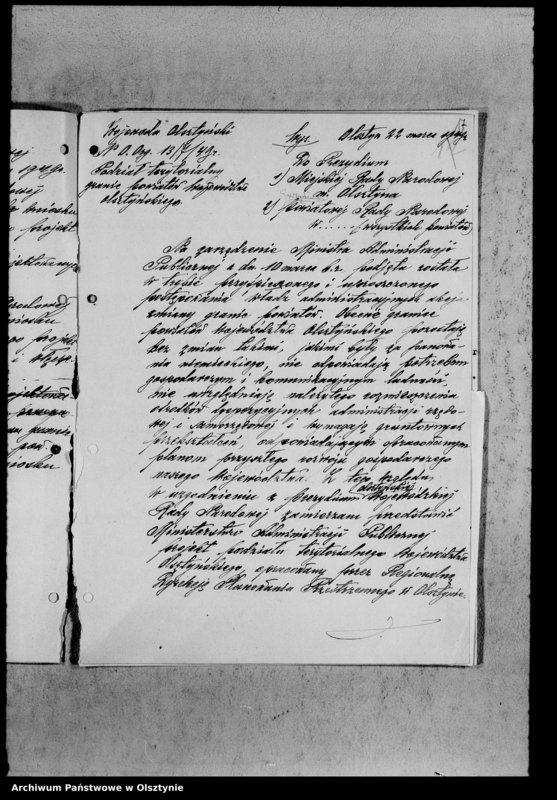 Wojewoda Olsztyński
Nr O. Org. 13/7/49.
Podział terytorialny
granic powiatów województwa
olsztyńskiego.
Olsztyn 22 marca
Do Prezydium
1) Miejskiej Rady Narodowej
m. Olsztyna
2) Powiatowej Rady Narodowej
w ...... (wszystkich powiatów)
Na zarządzenie Ministra Administracji
Publicznej z dn. 10 marca b.r. podjęta została
w trybie przyśpieszonego i uproszczonego
postępowania władz administracyjnych akcja
zmiany granic powiatów. Obecne granice
powiatów województwa Olsztyńskiego pozostają
bez zmian takimi, jakimi były za panowa-
nia niemieckiego, nie odpowiadają potrzebom
gospodarczym i komunikacyjnym ludności,
nie uwzględniają należytego rozmieszczenia
ośrodków dyspozycyjnych administracji rządo-
wej i samorządowej i wymagają gruntownych
przekształceń, odpowiadających opracowanym
planom przyszłego rozwoju gospodarczego
naszego województwa. Z tego względu
w uzgodnieniu z prezydium Wojewódzkiej
Rady Narodowej zamierzam przedstawić
Ministerstwu Administracji Publicznej
projekt podziału terytorialnego województwa
Olsztyńskiego, opracowany przez Regionalną
Dyrekcję Planowania Przestrzennego w Olsztynie.
Archiwum Państwowe w Olsztynie